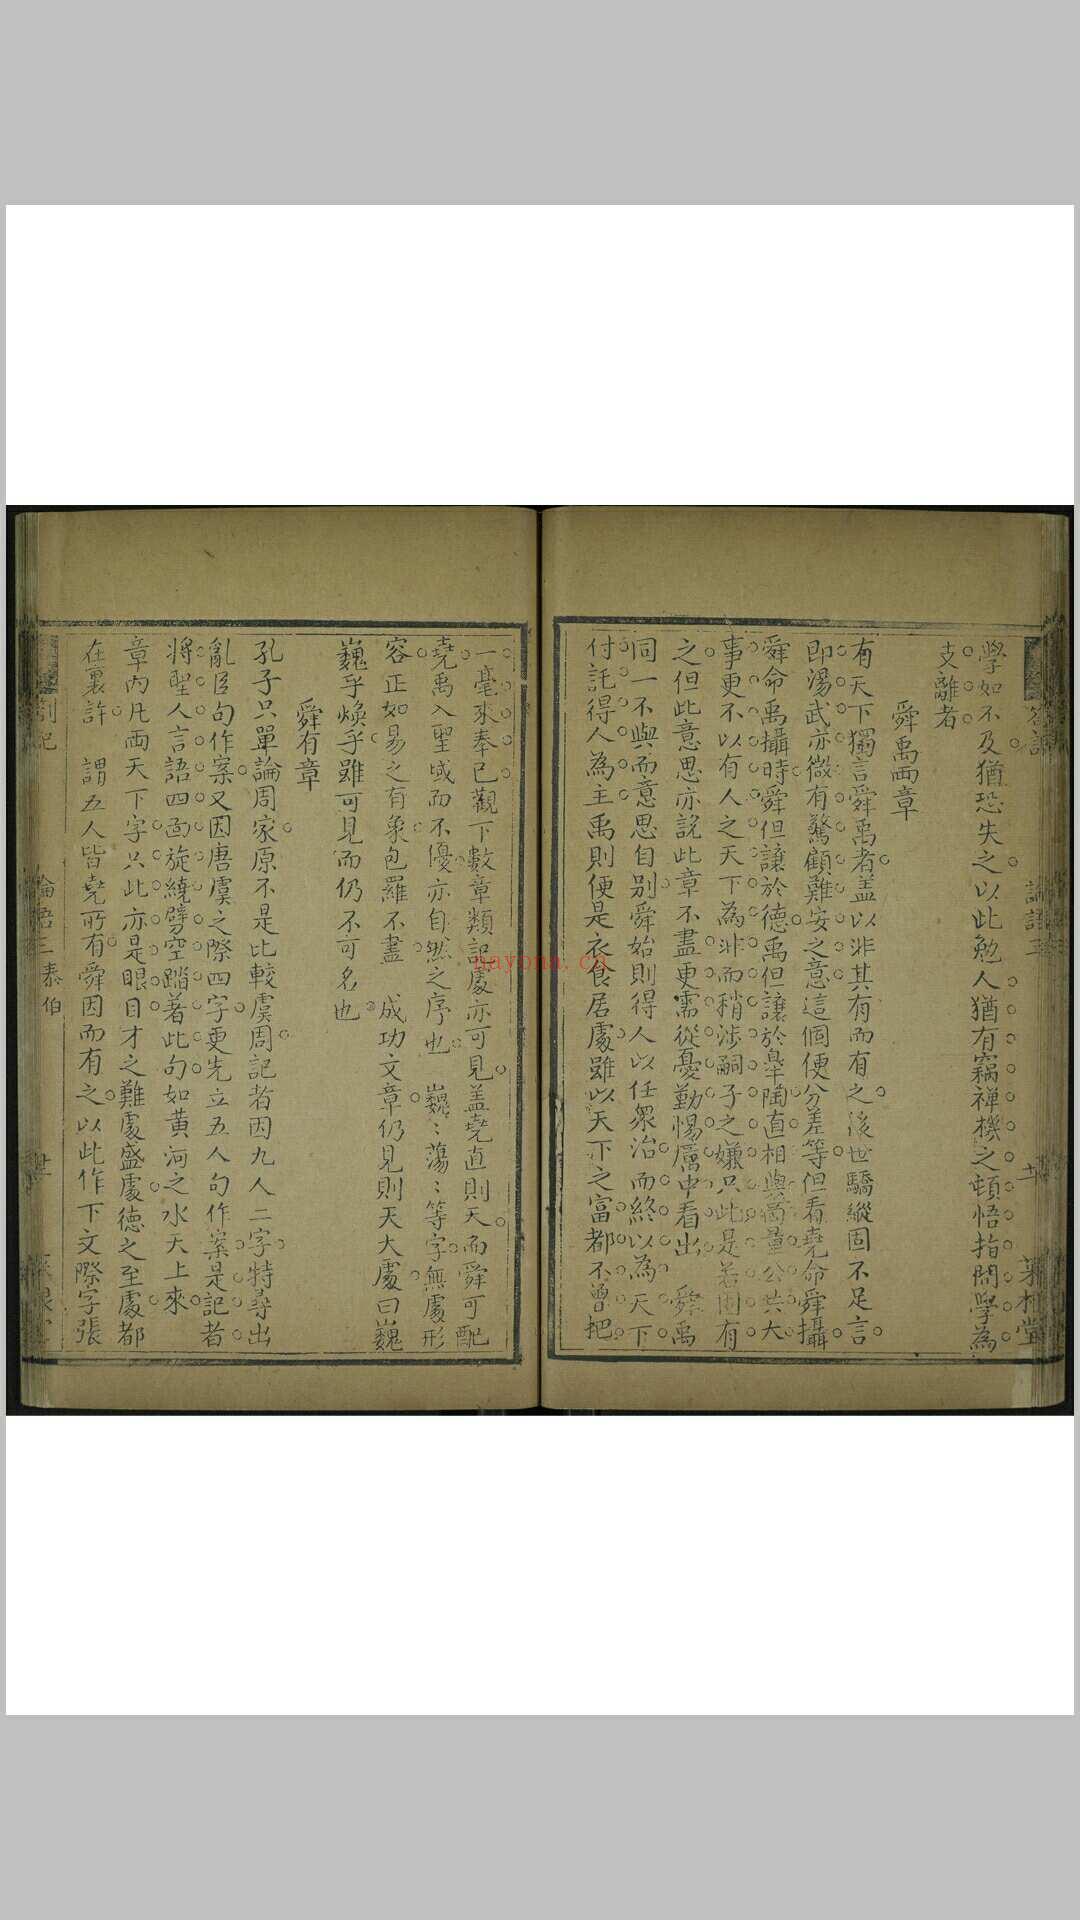 學如不及猶恐失之以此勉人猶有竊禪機之頓悟指問學為
支離者
舜禹兩章
有天下獨言舜禹者盖以非其有而有之後世驕縱固不足言
即湯武亦微有驚顧難安之意這個便分差等但看堯命舜攝
舜命禹攝時舜但讓於德禹但讓於臯陶直相與商量公共大
事更不以有人之天下為非而稍涉嗣子之嫌只此是若固有
之但此意思亦說此章不盡更需從憂勤惕厲中看出 舜禹
同一不與而意思自别舜始則得人以任衆治而終以為天下
付託得人為主禹則便是衣食居處雖以天下之富都不曾把
一毫來奉已觀下數章類記處亦可見盖堯直則天而舜可配
堯禹入聖域而不優亦自然之序也 巍〻蕩〻等字無處形
容正如易之有象包羅不盡 成功文章仍見則天大處曰巍
巍乎煥乎雖可見而仍不可名也
舜有章
孔子只單論周家原不是比較虞周記者因九人二字特尋出
亂臣句作案又因唐虞之際四字更先立五人句作案是記者
將聖人言語四面旋繞劈空蹈著此句如黄河之水天上來
章内凡兩天下字只此亦是眼目才之難處盛處德之至處都
在裏許 謂五人皆堯所有舜因而有之以此作下文際字張
劄記
論語三 泰伯
nayona.cn